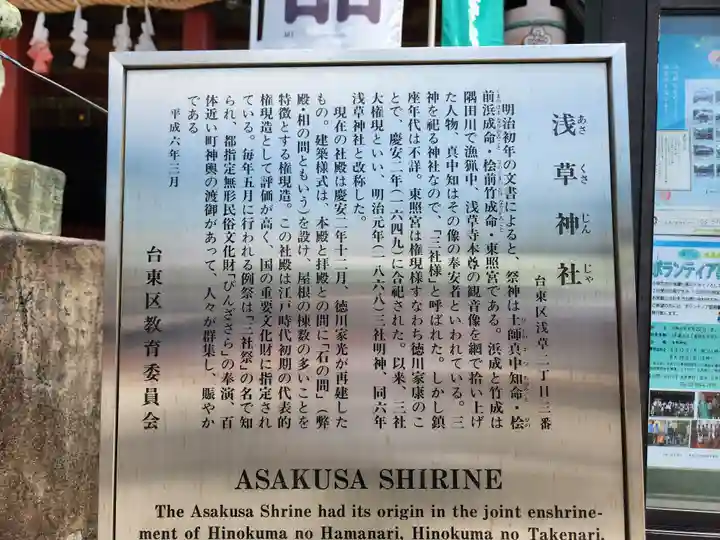 浅草神社
あさくさじんじゃ
台東区浅草二丁目三番
明治初年の文書によると、祭神は土師真中知命・桧
前浜成命・桧前竹成命・東照宮である。浜成と竹成は
隅田川で漁猟中、浅草寺本尊の観音像を網で拾い上げ
た人物、真中知はその像の奉安者といわれている。三
神を祀る神社なので、「三社様」と呼ばれた。しかし鎮
座年代は不詳。東照宮は権現様すなわち徳川家康のこ
とで、慶安二年(一六四九)に合祀された。以来、三社
大権現といい、明治元年(一八六八)三社明神、同六年
浅草神社と改称した。
現在の社殿は慶安二年十二月、徳川家光が再建した
もの。建築様式は、本殿と拝殿との間に「石の間」(弊
殿・相の間ともいう)を設け、屋根の棟数の多いことを
特徴とする権現造。この社殿は江戸時代初期の代表的
権現造として評価が高く、国の重要文化財に指定され
ている。毎年五月に行われる例祭は「三社祭」の名で知
られ、都指定無形民俗文化財「びんざさら」の奉演、百
体近い町神輿の渡御があって、人々が群集し、賑やか
である
平成六年三月
台東区教育委員会
ASAKUSA SHIRINE
The Asakusa Shrine had its origin in the joint enshrine-
ment of Hinokuma no Hamanari, Hinokuma no Takenari,
ボランティア